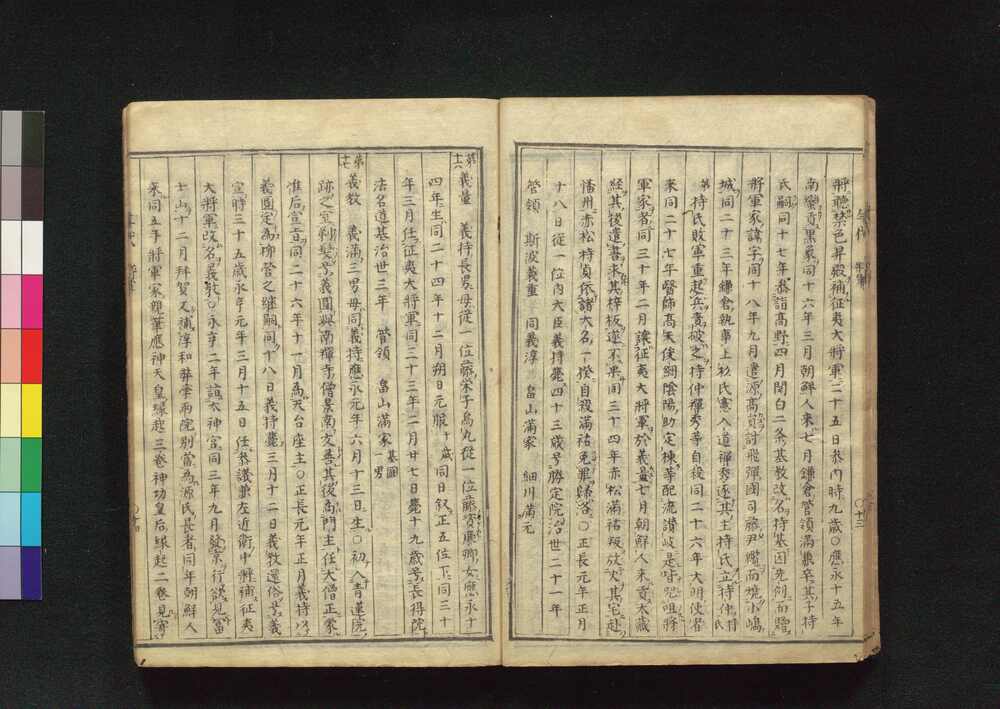 將聴禁色昇殿補征夷大將軍二十五日參内時九歳○應永十五年
南蠻貢黒象同十六年三月朝鮮人來七月鎌倉管領滿兼卒其子持
氏嗣同十七年參詣高野四月関白二条基教改名持基因先例而賜
將軍家諱字同十八年九月遣源高討飛彈國司藤尹綱而燒小嶋
城同二十三年鎌倉執事上杦氏憲入道禅秀逐其主持氏立持仲持氏
弟持氏敗軍重起兵責破之持仲禅秀等自殺同二十六年大明使者
來同二十七年醫師高天俊細陰陽助定棟等配流讃岐是呼咒咀將
軍家者同三十年二月讓征夷大將軍於義量七月朝鮮人來貢大藏
經其後遣書求其梓板遂不果同三十四年赤松滿祐叛放火其宅赴
播州赤松持貞依諸大名一揆自殺滿祐免罪歸洛○正長元年正月
十八日從一位内大臣義持薨四十三歳号勝定院治世二十一年
管領 斯波義重 同義淳 畠山滿家 細川滿元
第十六 義量 義持長男母從一位藤栄子烏丸從一位藤資廉卿女應永十
四年生同二十四年十二月朔日元服十一歳同日叙正五位下同三十
年三月任征夷大將軍同三十三年二月廿七日薨十九歳号長得院
法名道基治世三年 管領 畠山滿家基國一男
第十七 義教 義滿三男母同義持應永元年六月十三日生○初入青蓮院
跡之室剃髪号義圓與南禅寺僧景南文善其後高門主任大僧正蒙
准后宣旨同二十六年十一月為天台座主○正長元年正月義持以
義圓定為柳營之継嗣同十八日義持薨三月十二日義教還俗号義
宣時三十五歳永享元年三月十五日任參議兼左近衛中將補征夷
大將軍改名義教○永享二年詣太神宮同三年九月發京行欲見冨
士山十二月拜賀又補淳和弉學兩院別當為源氏長者同年朝鮮人
來同五年將軍家親筆應神天皇縁起三卷神功皇后縁起二卷見寄